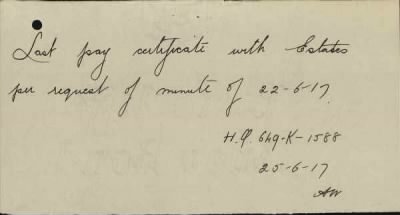 Last pay certificate with Estates
per request of minute of 22-6-17
H.Q. 649-K-1588
25-6-17
AW